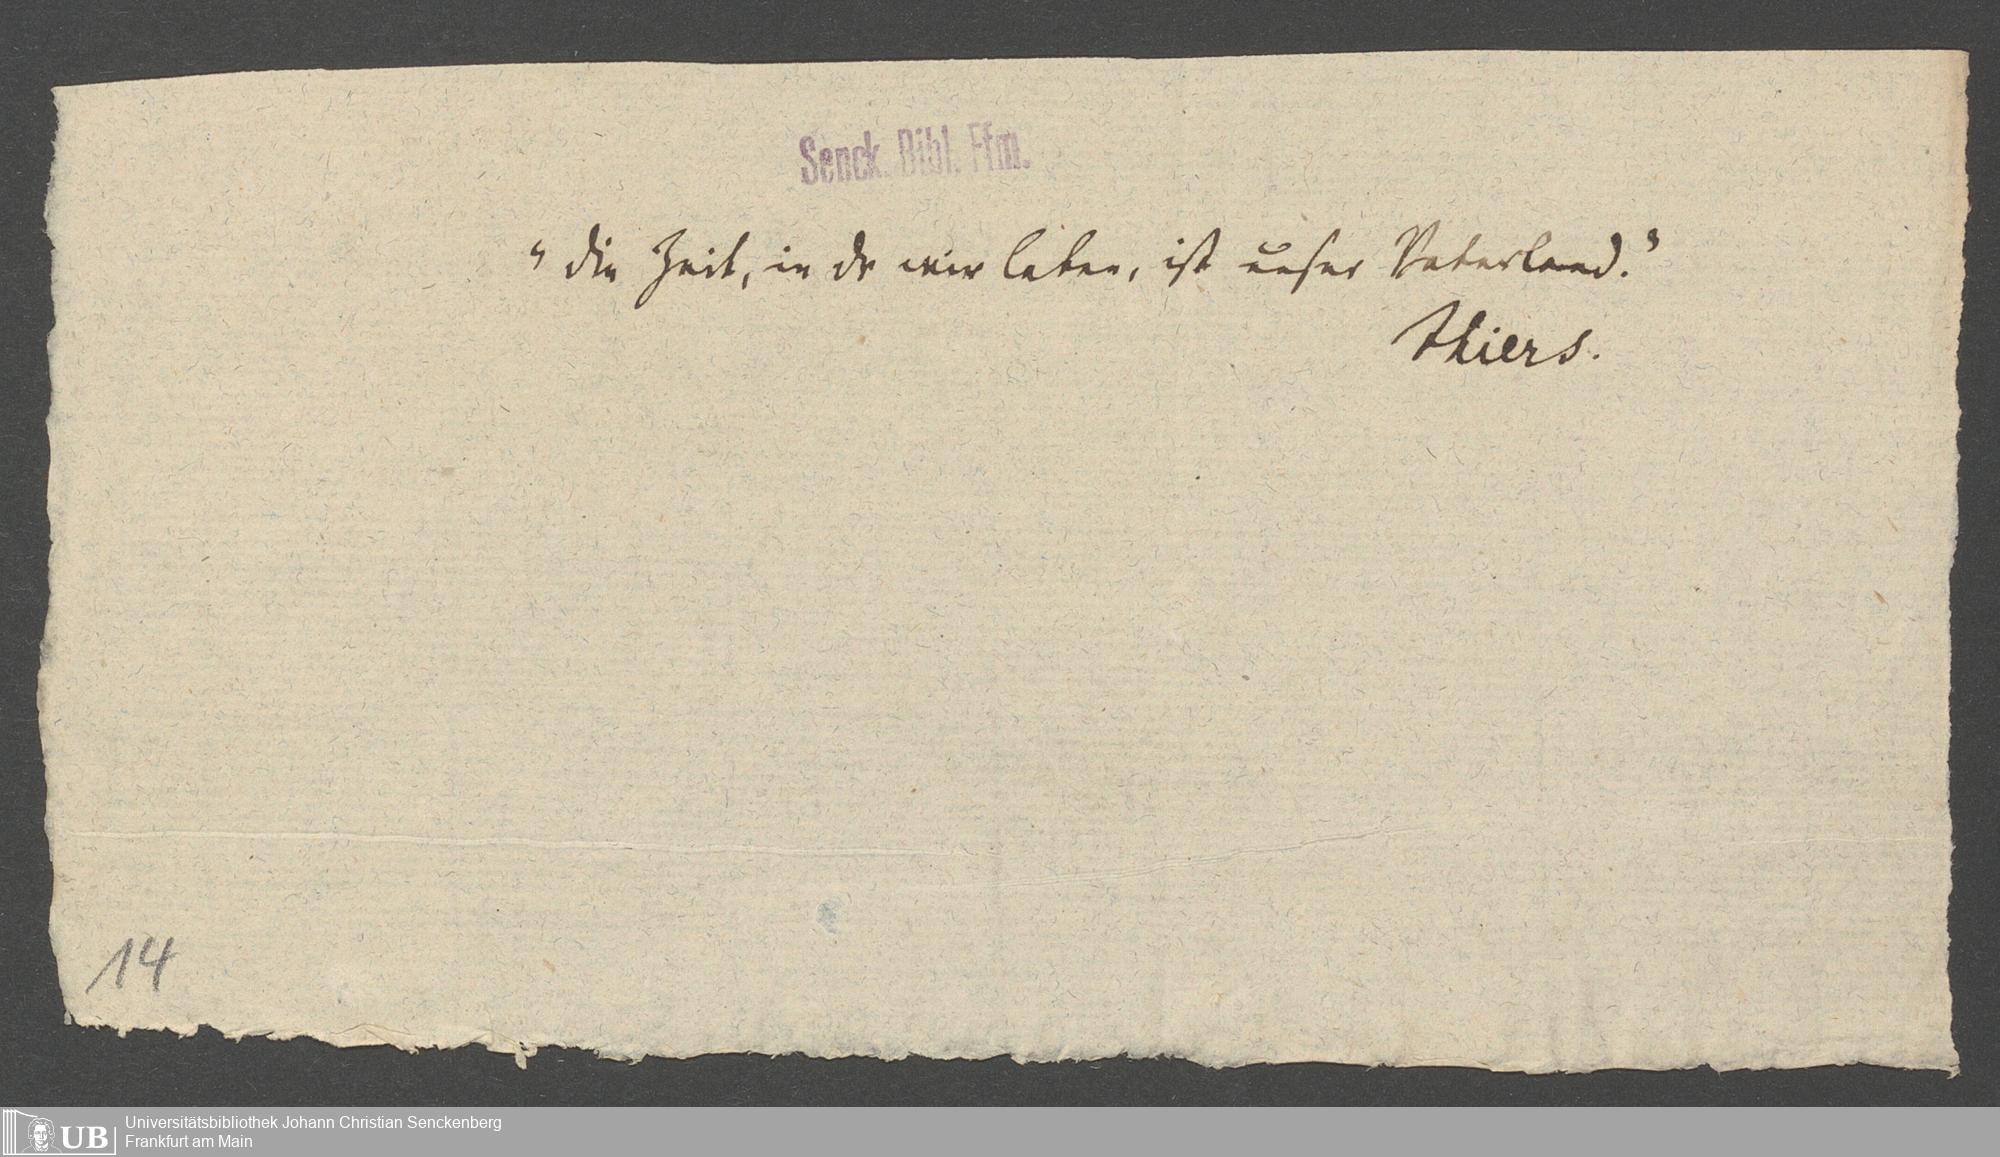 Senck. Bibl. Ffm.
"die Zeit, in dr wir leben, ist unser Vaterland."
Thiers.
14
UB
Universitätsbibliothek Johann Christian Senckenberg
Frankfurt am Main